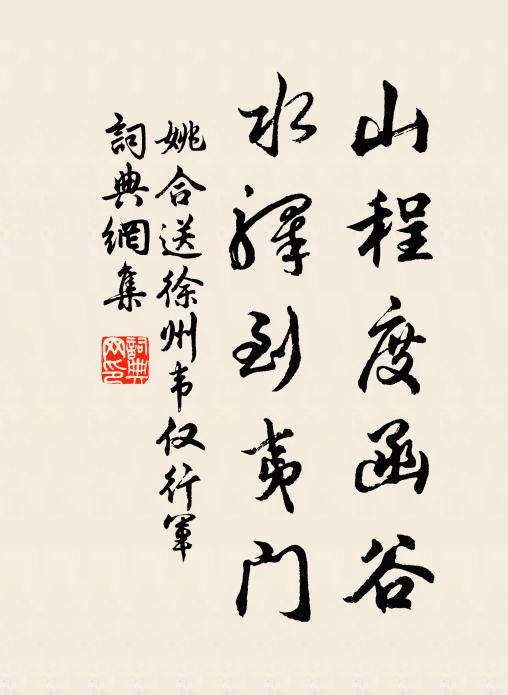 山程度函谷
水驿到夷门
姚合送徐州韦仅行軍
詞典網集
詞典网印